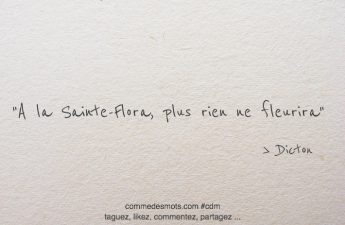 "A la Sainte-Flora, plus rien ne fleurira"
> Dicton
commedesmots.com #cdm
taguez, likez, commentez, partagez ...